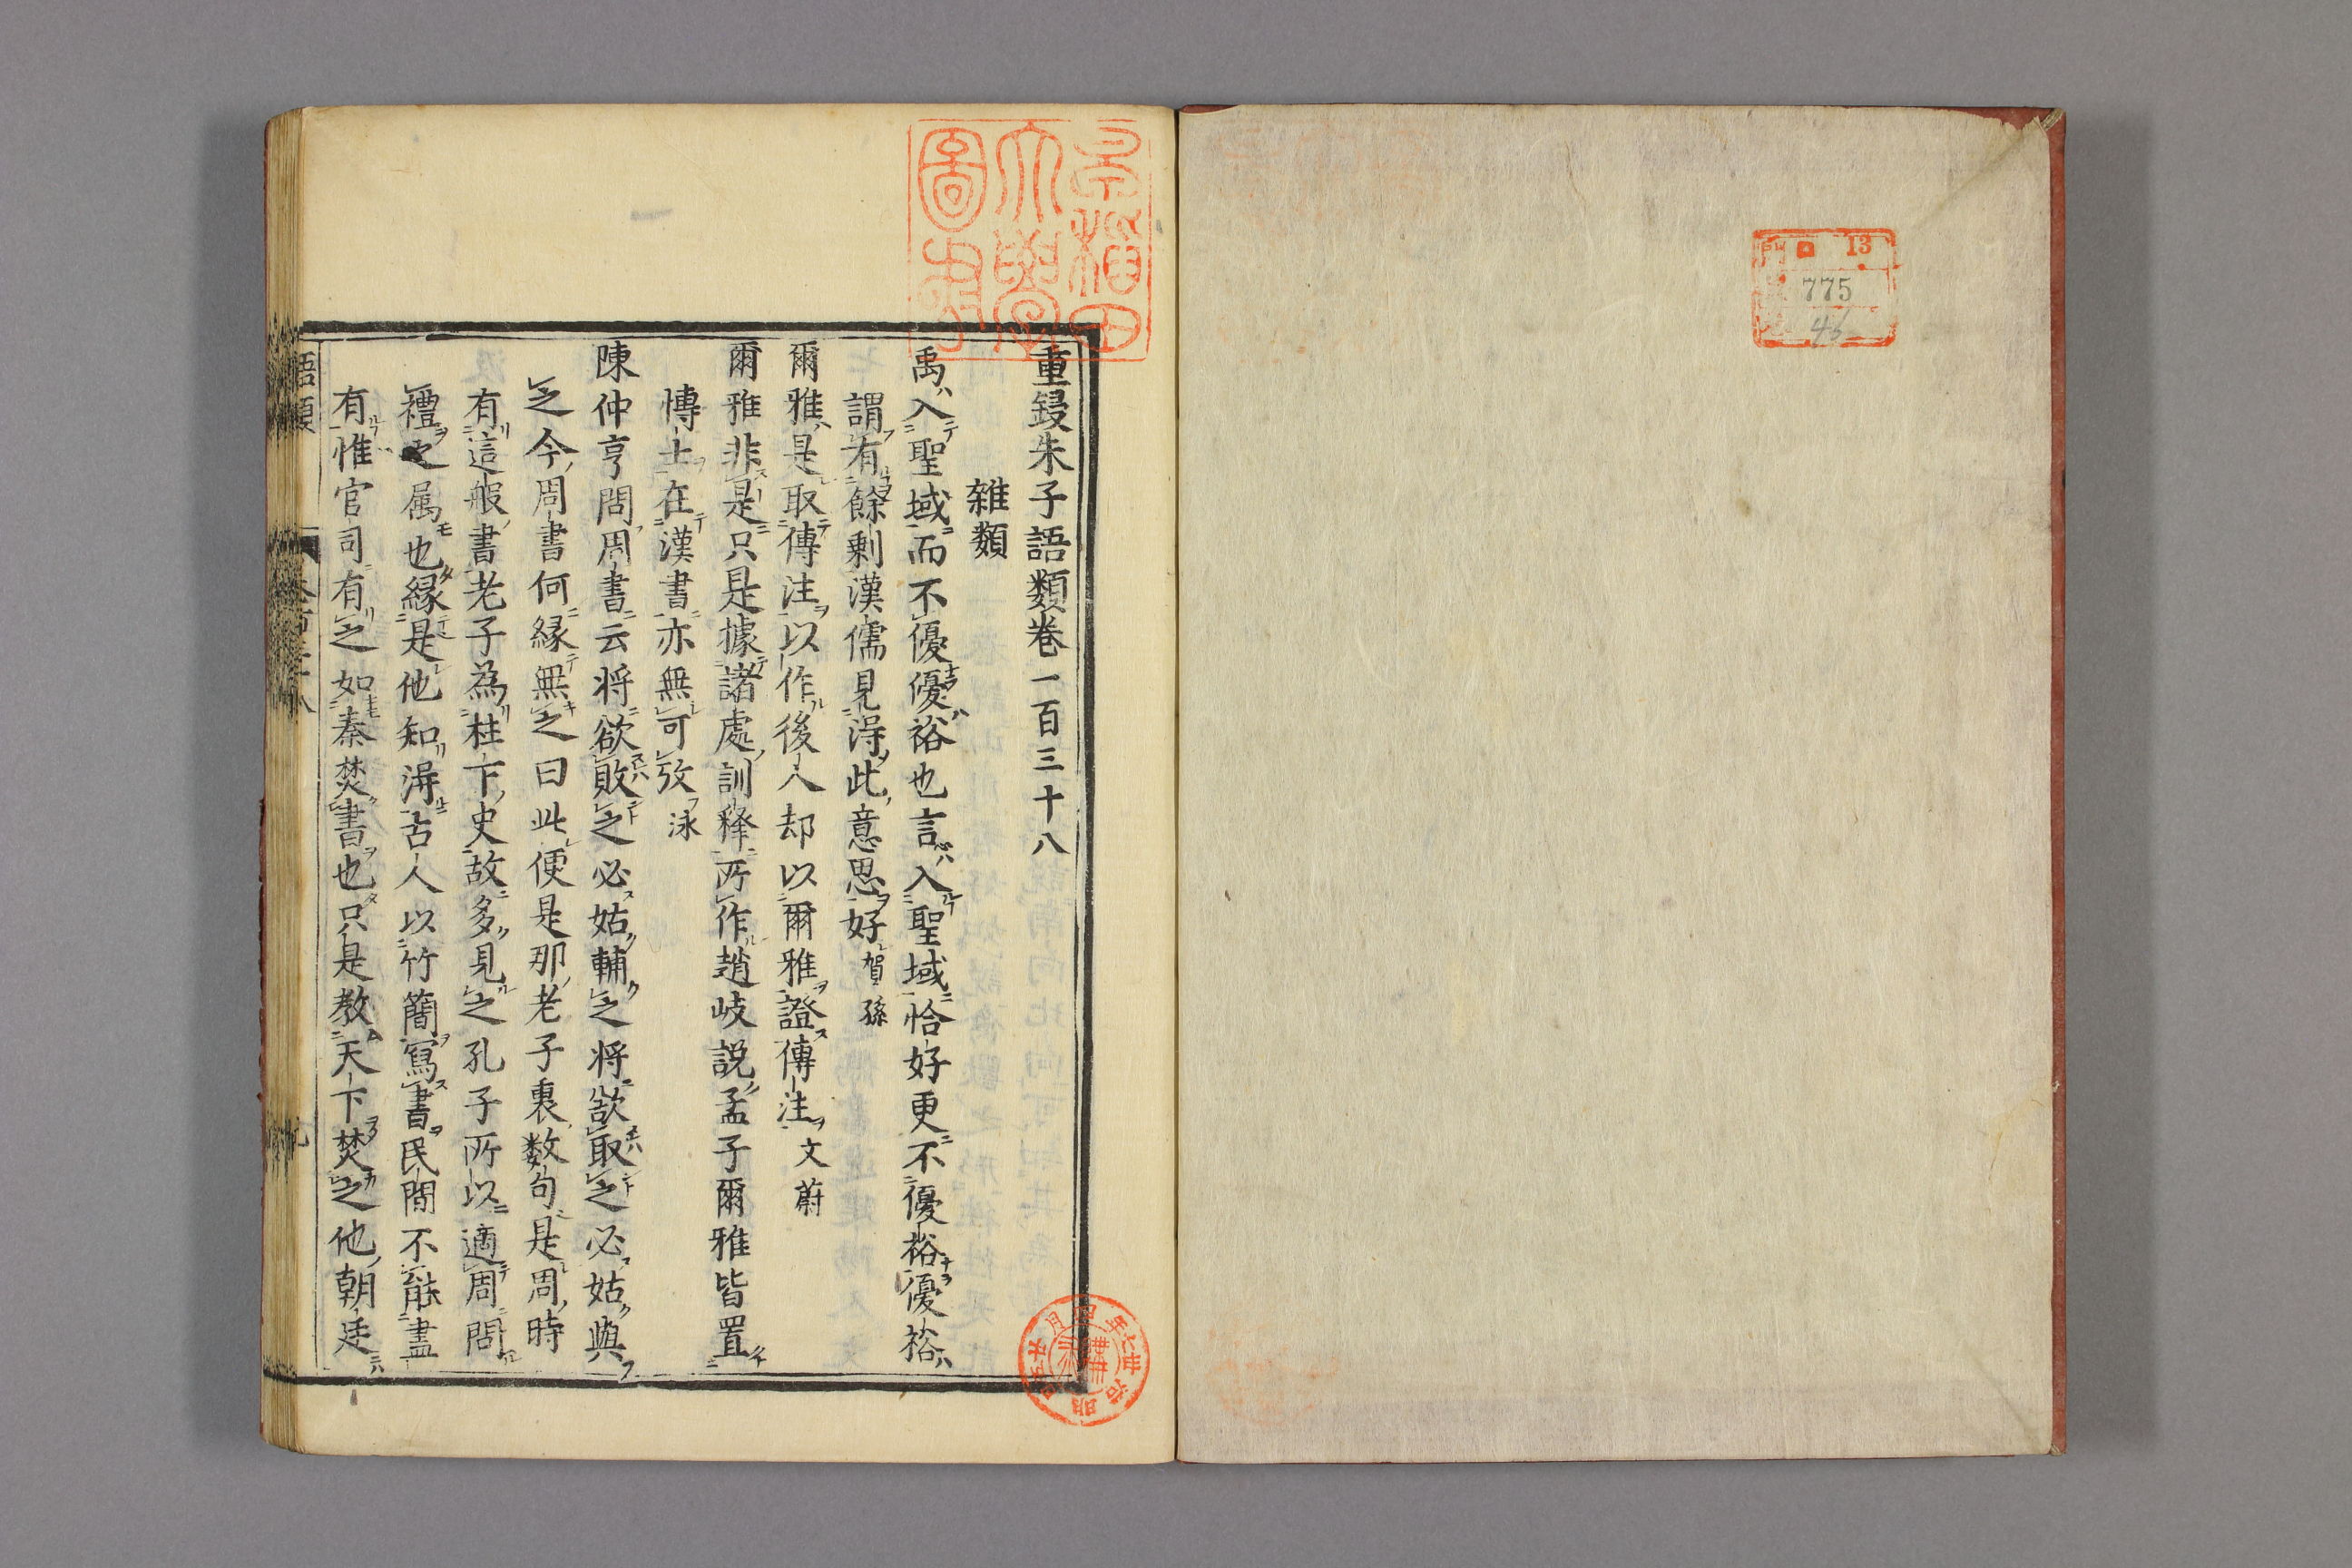 13
775
46
早稲田
大學
圖書
重鋟朱子語類卷一百三十八
雜類
禹入聖域而不優優裕也言入聖域恰好更不優裕優裕
謂有餘剩漢儒見淂此意思好賀孫
爾雅是取傳注以作後人却以爾雅證傳注文蔚
爾雅非是只是據諸處訓釋所作趙岐説孟子爾雅皆置
博士在漢書亦無可攷泳
陳仲亨問周書云将欲敗之必姑輔之将欲取之必姑與
之今周書何縁無之曰此便是那老子裏数句是周時
有這般書老子為柱下史故多見之孔子所以適周問
禮之属也縁是他知淂古人以竹簡寫書民間不能盡
有惟官司有之如秦焚書也只是教天下焚之他朝廷
語類